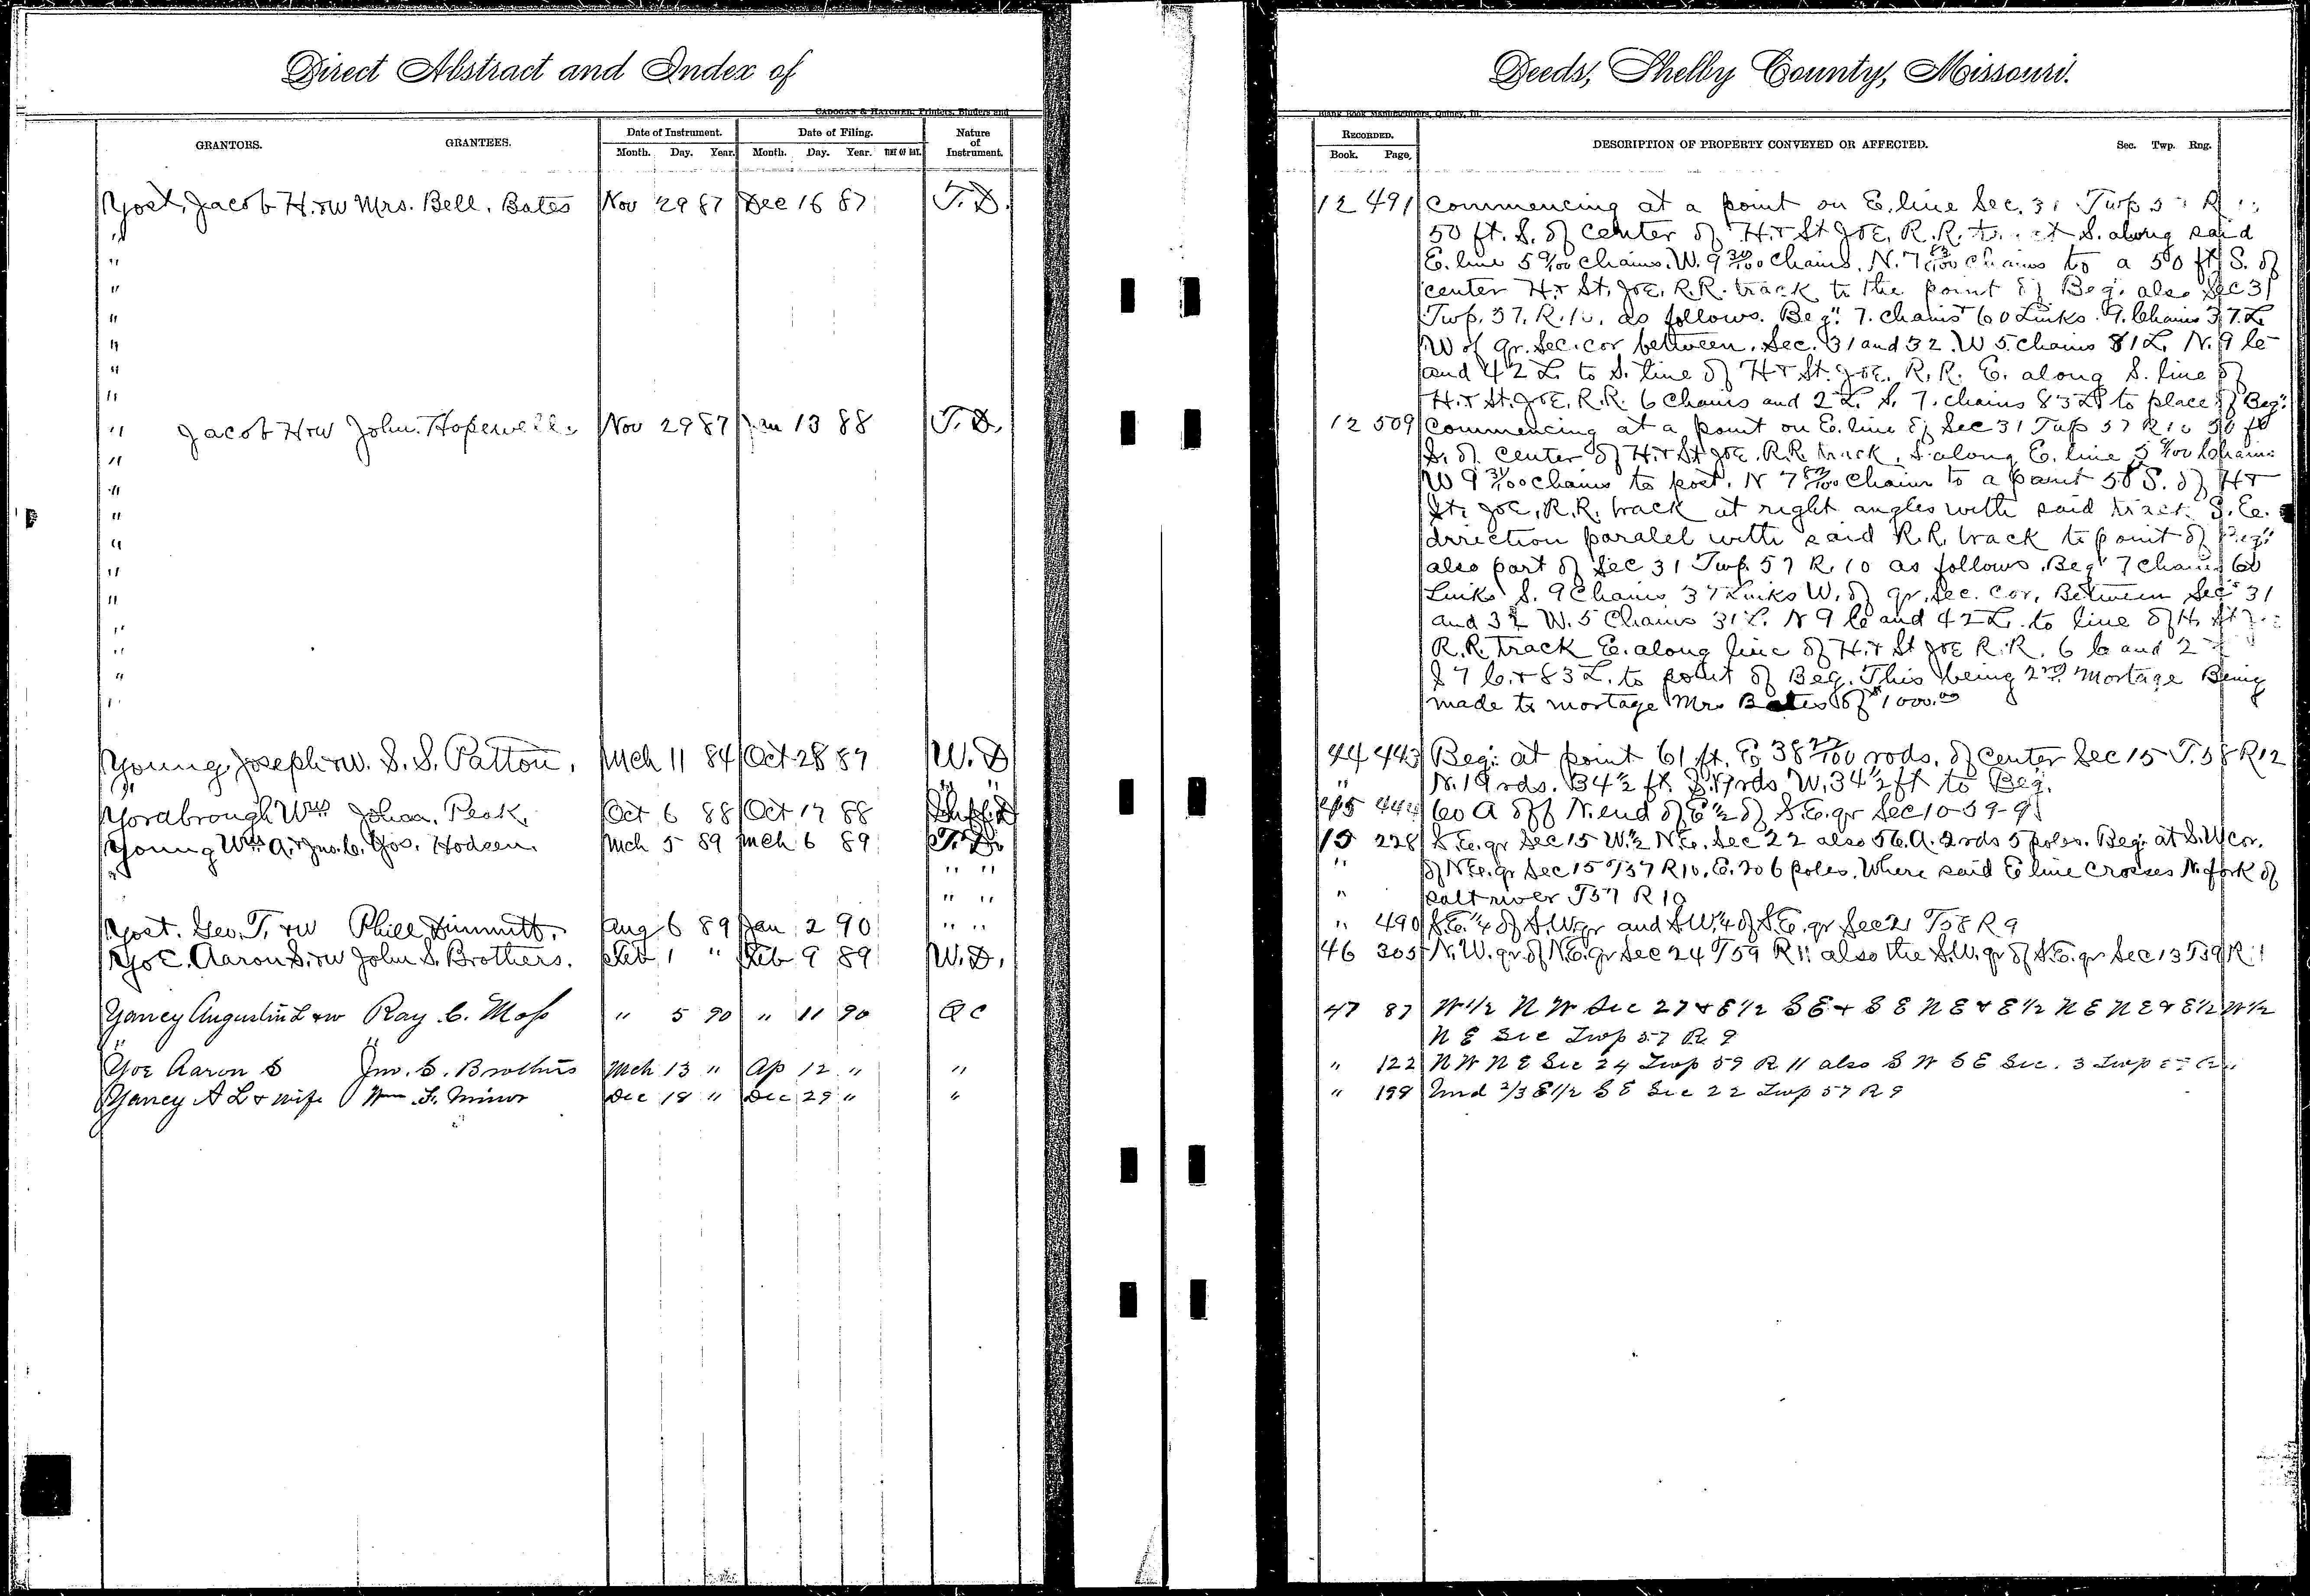 Direct Abstract and Index of
CADOGAN & HATCHER, Printers, Binders and
GRANTORS. GRANTEES. Date of Instrument. Date of Filing. Nature of Instrument.
Month. Day. Year. Month. Day. Year. TIME OF DAY.
Yost, Jacob H. & W Mrs. Bell. Bates Nov 29 87 Dec 16 87 T. D.
"
"
"
"
"
"
"
" Jacob H & W John. Hopewell. Nov 29 87 Jan 13 88 T. D.
"
"
"
"
"
"
"
"
"
"
Young, Joseph & W. S. S. Patton. Mch 11 84 Oct 28 87 W. D
" " "
Yordbrough Wm Johan. Peak. Oct 6 88 Oct 17 88
Young Wm A. & Jno. C. Jos. Hodgen. Mch 5 89 Mch 6 89 T. D.
" " "
" "
Yost. Geo. T. & W Phill Dimmitt. Aug 6 89 Jan 2 90 " "
Yoe. Aaron S. & W John S. Brothers. Feb 1 " Feb 9 89 W. D.
Yancey Augustin L & W Ray C. Moss " 5 90 " 11 90 Q C
Yoe Aaron S Jno. S. Brothers Mch 13 " Ap 12 " "
Yancey A L & wife Wm F. Minor Dec 18 " Dec 29 " "
Deeds, Shelby County, Missouri.
Blank Book Manufacturers, Quincy, Ill.
RECORDED. DESCRIPTION OF PROPERTY CONVEYED OR AFFECTED. Sec. Twp. Rng.
Book. Page.
12 491 Commencing at a point on E. line Sec. 31 Twp 5 R
50 ft. S. of center of H. & St Joe, R.R. S. along said
E. line 5 9/100 chains. W. 9 30/100 Chains. N. 7 83/100 chains to a 50 ft S. of
center H. & St. Joe. R.R. track to the point of Beg. also Sec 31
Twp. 57. R. 10. as follows. Beg. 7. chains 60 Links. 9. Chains 37. L
W of qr. Sec. cor between. Sec. 31 and 32. W 5. chains 81 L. N. 9 C
and 42 L. to S. line of H & St. Joe. R.R. E. along S. line of
H. & St. Joe. R.R. 6 Chains and 2 L. S. 7. chains 83 L to place of Beg.
12 509 Commencing at a point on E. line of Sec 31 Twp 57 R 10 50 ft
S. of center of H. & St Joe. R.R. track. S. along E. line 5 9/100 Chains
W 9 31/100 chains to post. N 7 83/100 chains to a point 50 S. of H &
St. Joe, R.R. track at right angles with said track. S. E.
direction paralel with said R.R. track to point of Beg.
also part of Sec 31 Twp. 57 R. 10 as follows. Beg 7 Chains 60
Links S. 9 Chains 37 Links W. of qr. Sec. cor. Between Sec 31
and 32 W. 5 Chains 31 L. N 9 C and 42 L. to line of H. St
R.R. track E. along line of H. & St Joe R.R. 6 C and 2
S 7 C. & 83 L. to point of Beg. This being 2nd Mortage Being
made to mortage Mrs Bates of $1000.00
44 443 Beg. at point 61 ft. E 38 22/100 rods. of center Sec 15 T. 58 R 12
" N. 19 rds. E 34½ ft S. 19 rds W. 34½ ft to Beg.
45 444 60 A off N. end of E ½ of S. E. qr Sec 10-59-9
15 228 S E. qr Sec 15 W. ½ N E. Sec 22 also 56. A. 2 rds 5 poles. Beg. at S.W cor.
" of N E. qr Sec 15 T 57 R 10. E. 206 poles. Where said E line crosses N. fork of
" salt river T 57 R 10
" 490 S. E. ¼ of S. W. qr and S W. ¼ of S. E. qr Sec 21 T 58 R 9
46 305 N. W. qr of N. E. qr Sec 24 T 59 R 11 also the S. W. qr of S. E. qr Sec 13 T 59 R 11
47 87 W 1/2 N W Sec 27 & E 1/2 S E & S E N E & E 1/2 N E N E & E 1/2 W 1/2
N E Sec Twp 57 R 9
" 122 N W N E Sec 24 Twp 59 R 11 also S W S E Sec. 3 Twp
" 199 Und 2/3 E 1/2 S E Sec 22 Twp 57 R 9